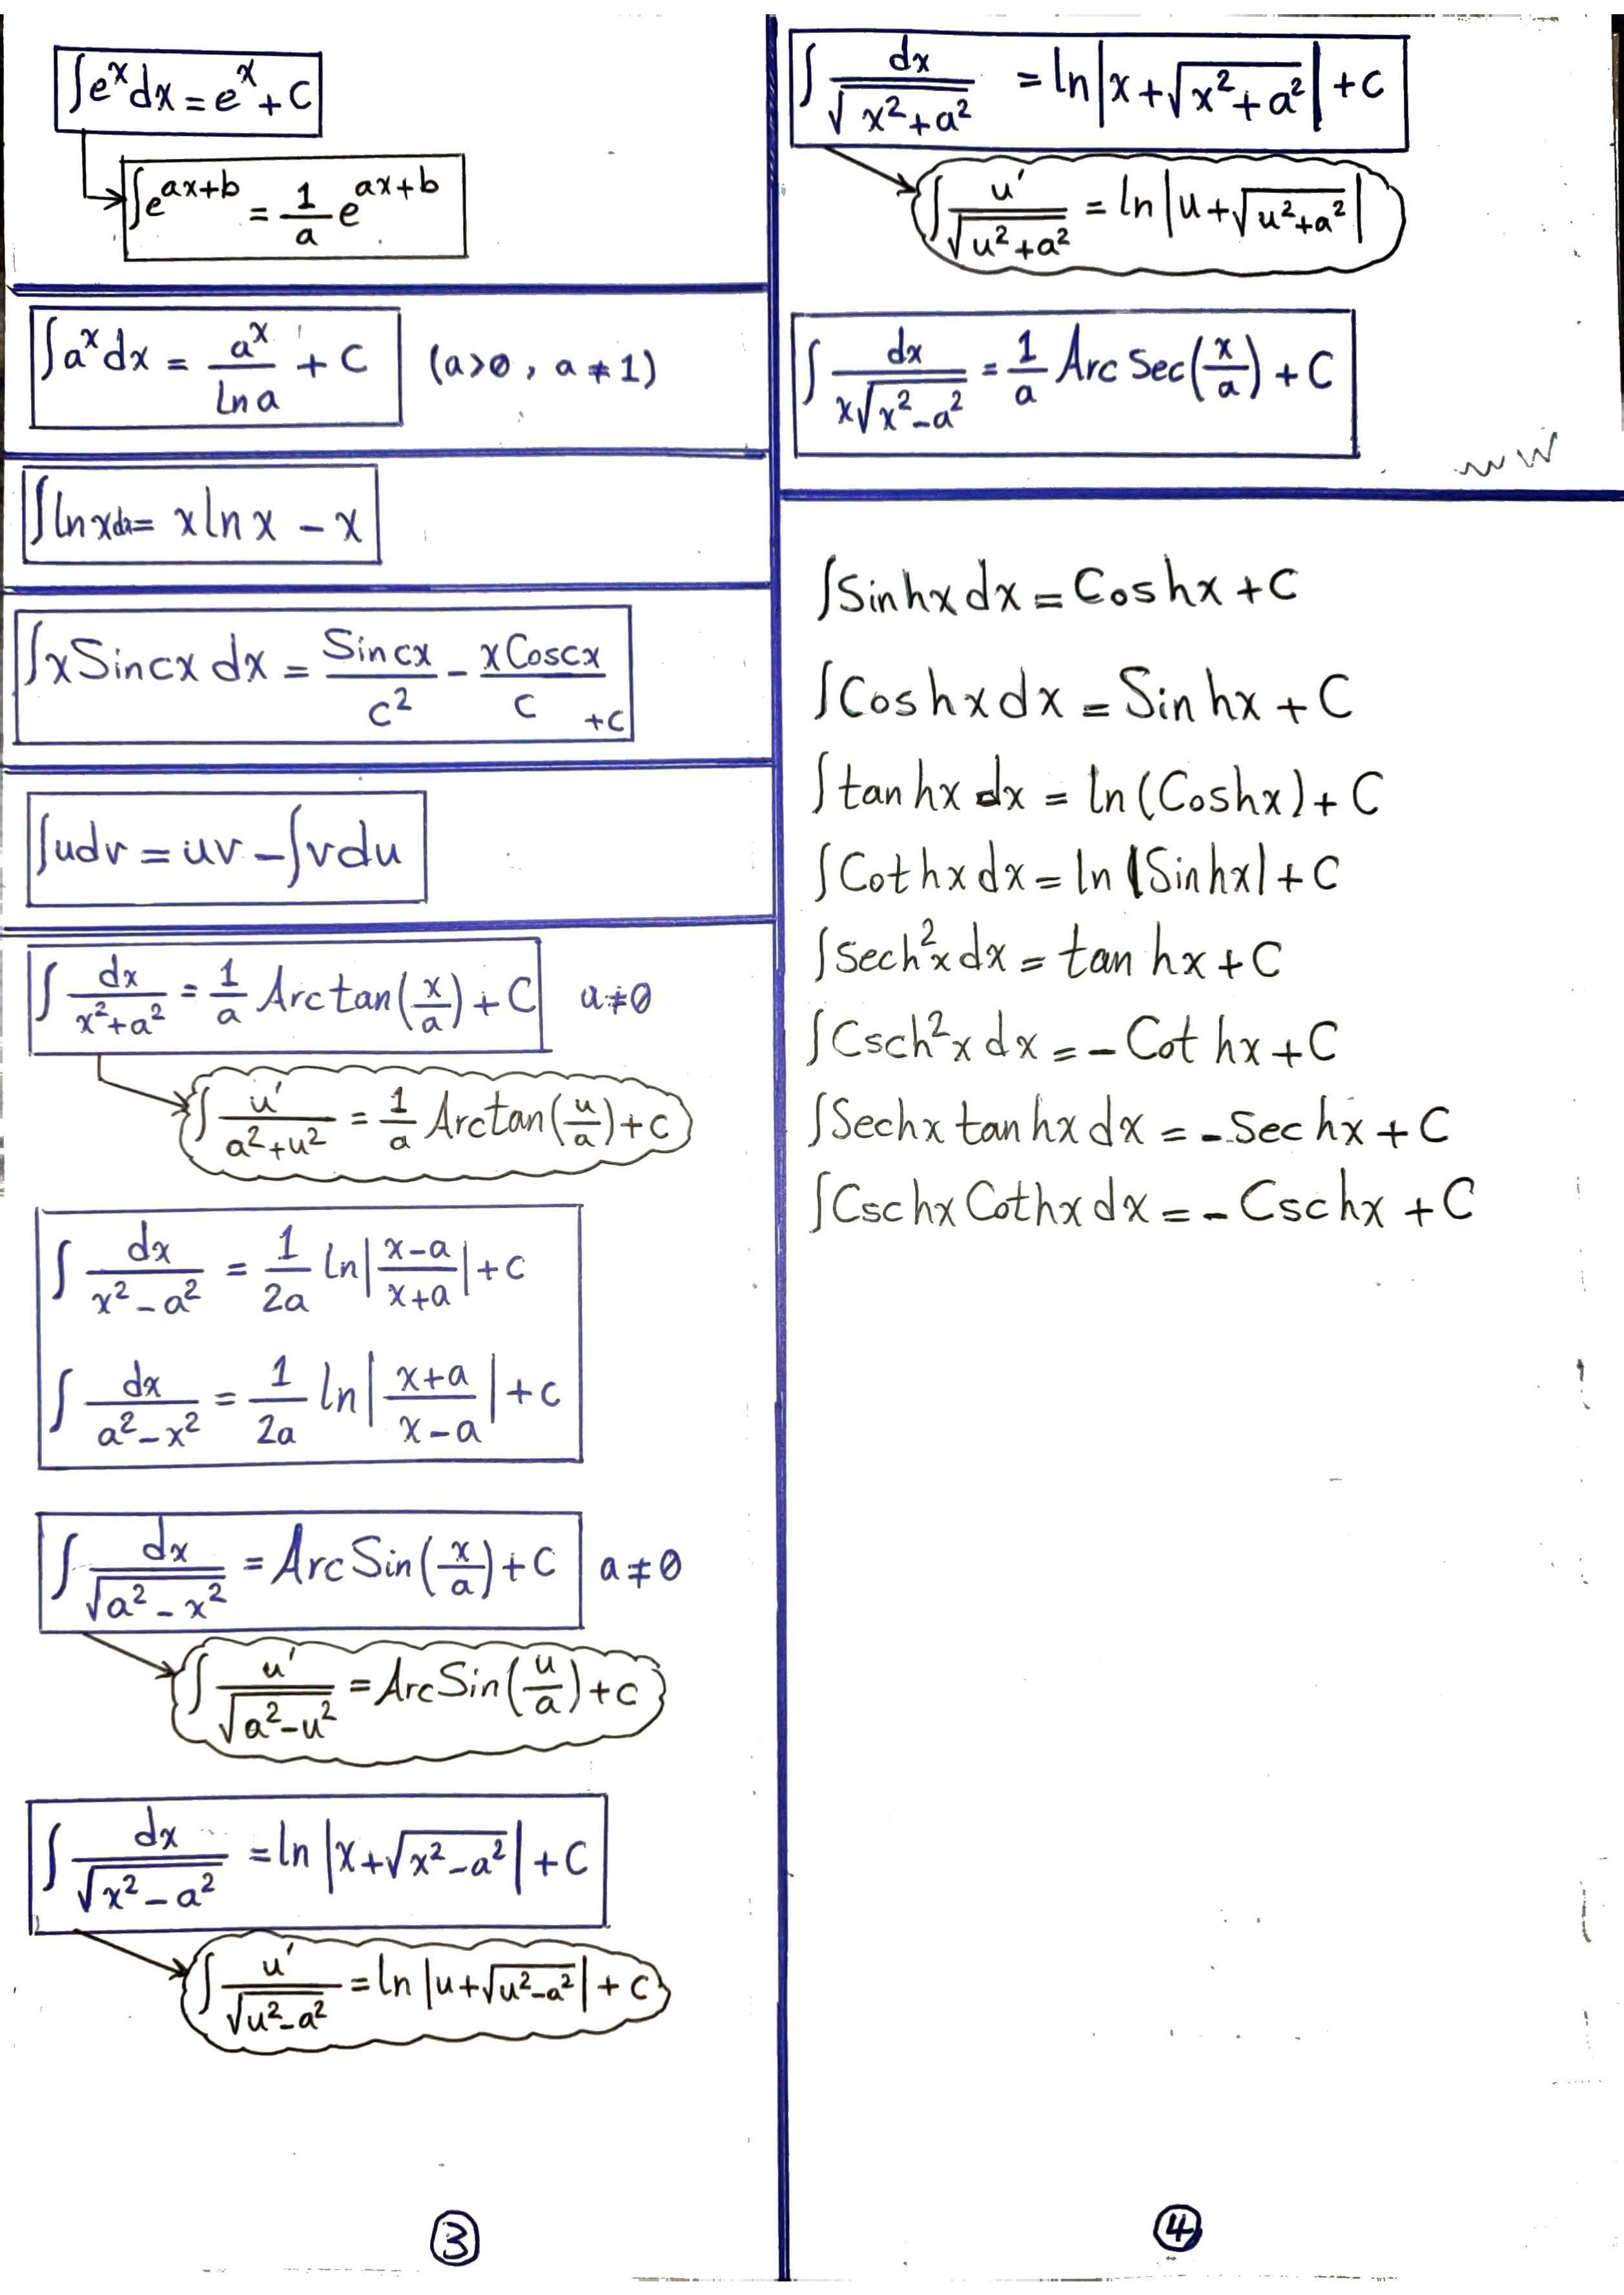 ∫e^x dx = e^x + C
∫e^(ax+b) = 1/a e^(ax+b)
∫a^x dx = a^x/Ln a + C (a>0, a≠1)
∫ln x dx = x ln x - x
∫x Sin cx dx = Sin cx/c² - x Cos cx/c + C
∫u dv = uv - ∫v du
∫ dx/(x²+a²) = 1/a Arc tan(x/a) + C a≠0
∫ u'/(a²+u²) = 1/a Arc tan(u/a) + C
∫ dx/(x²-a²) = 1/2a Ln|(x-a)/(x+a)| + C
∫ dx/(a²-x²) = 1/2a ln|(x+a)/(x-a)| + C
∫ dx/√(a²-x²) = Arc Sin(x/a) + C a≠0
∫ u'/√(a²-u²) = Arc Sin(u/a) + C
∫ dx/√(x²-a²) = ln|x+√(x²-a²)| + C
∫ u'/√(u²-a²) = ln|u+√(u²-a²)| + C
3
∫ dx/√(x²+a²) = ln|x+√(x²+a²)| + C
∫ u'/√(u²+a²) = ln|u+√(u²+a²)|
∫ dx/(x√(x²-a²)) = 1/a Arc Sec(x/a) + C
∫Sinhx dx = Coshx + C
∫Coshx dx = Sinhx + C
∫tanhx dx = ln(Coshx) + C
∫Cothx dx = ln|Sinhx| + C
∫Sech²x dx = tanhx + C
∫Csch²x dx = -Cothx + C
∫Sechx tanhx dx = -Sechx + C
∫Cschx Cothx dx = -Cschx + C
4